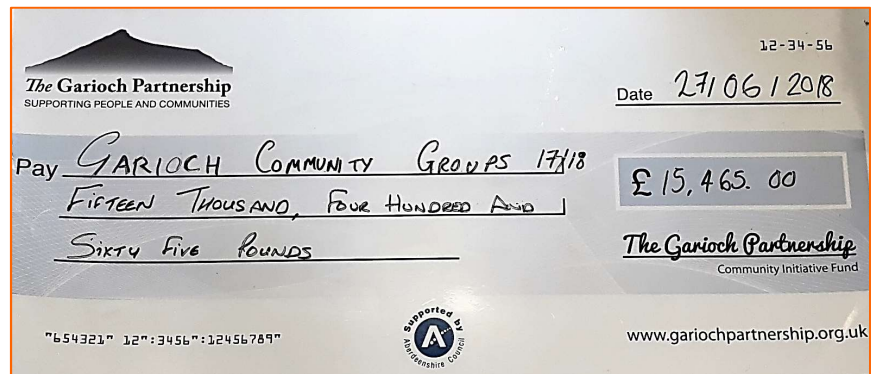 12-34-56
The Garioch Partnership
SUPPORTING PEOPLE AND COMMUNITIES
Date 27/06/2018
Pay GARIOCH COMMUNITY GROUPS 17/18
£ 15,465.00
FIFTEEN THOUSAND, FOUR HUNDRED AND
SIXTY FIVE POUNDS
The Garioch Partnership
Community Initiative Fund
"654321" 12":3456":12456789"
Supported by
Aberdeenshire Council
www.gariochpartnership.org.uk